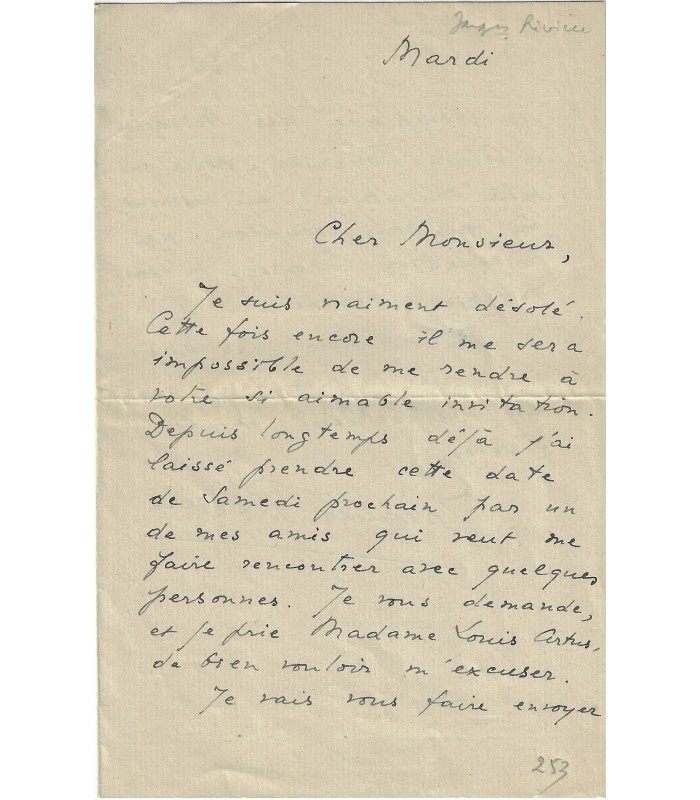 Jacques Rivière
Mardi
Cher Monsieur,
Je suis vraiment désolé.
Cette fois encore il me sera
impossible de me rendre à
votre si aimable invitation.
Depuis longtemps déjà j'ai
laissé prendre cette date
de Samedi prochain par un
de mes amis qui veut me
faire rencontrer avec quelques
personnes. Je vous demande,
et je prie Madame Louis Artus,
de bien vouloir m'excuser.
Je vais vous faire envoyer
253